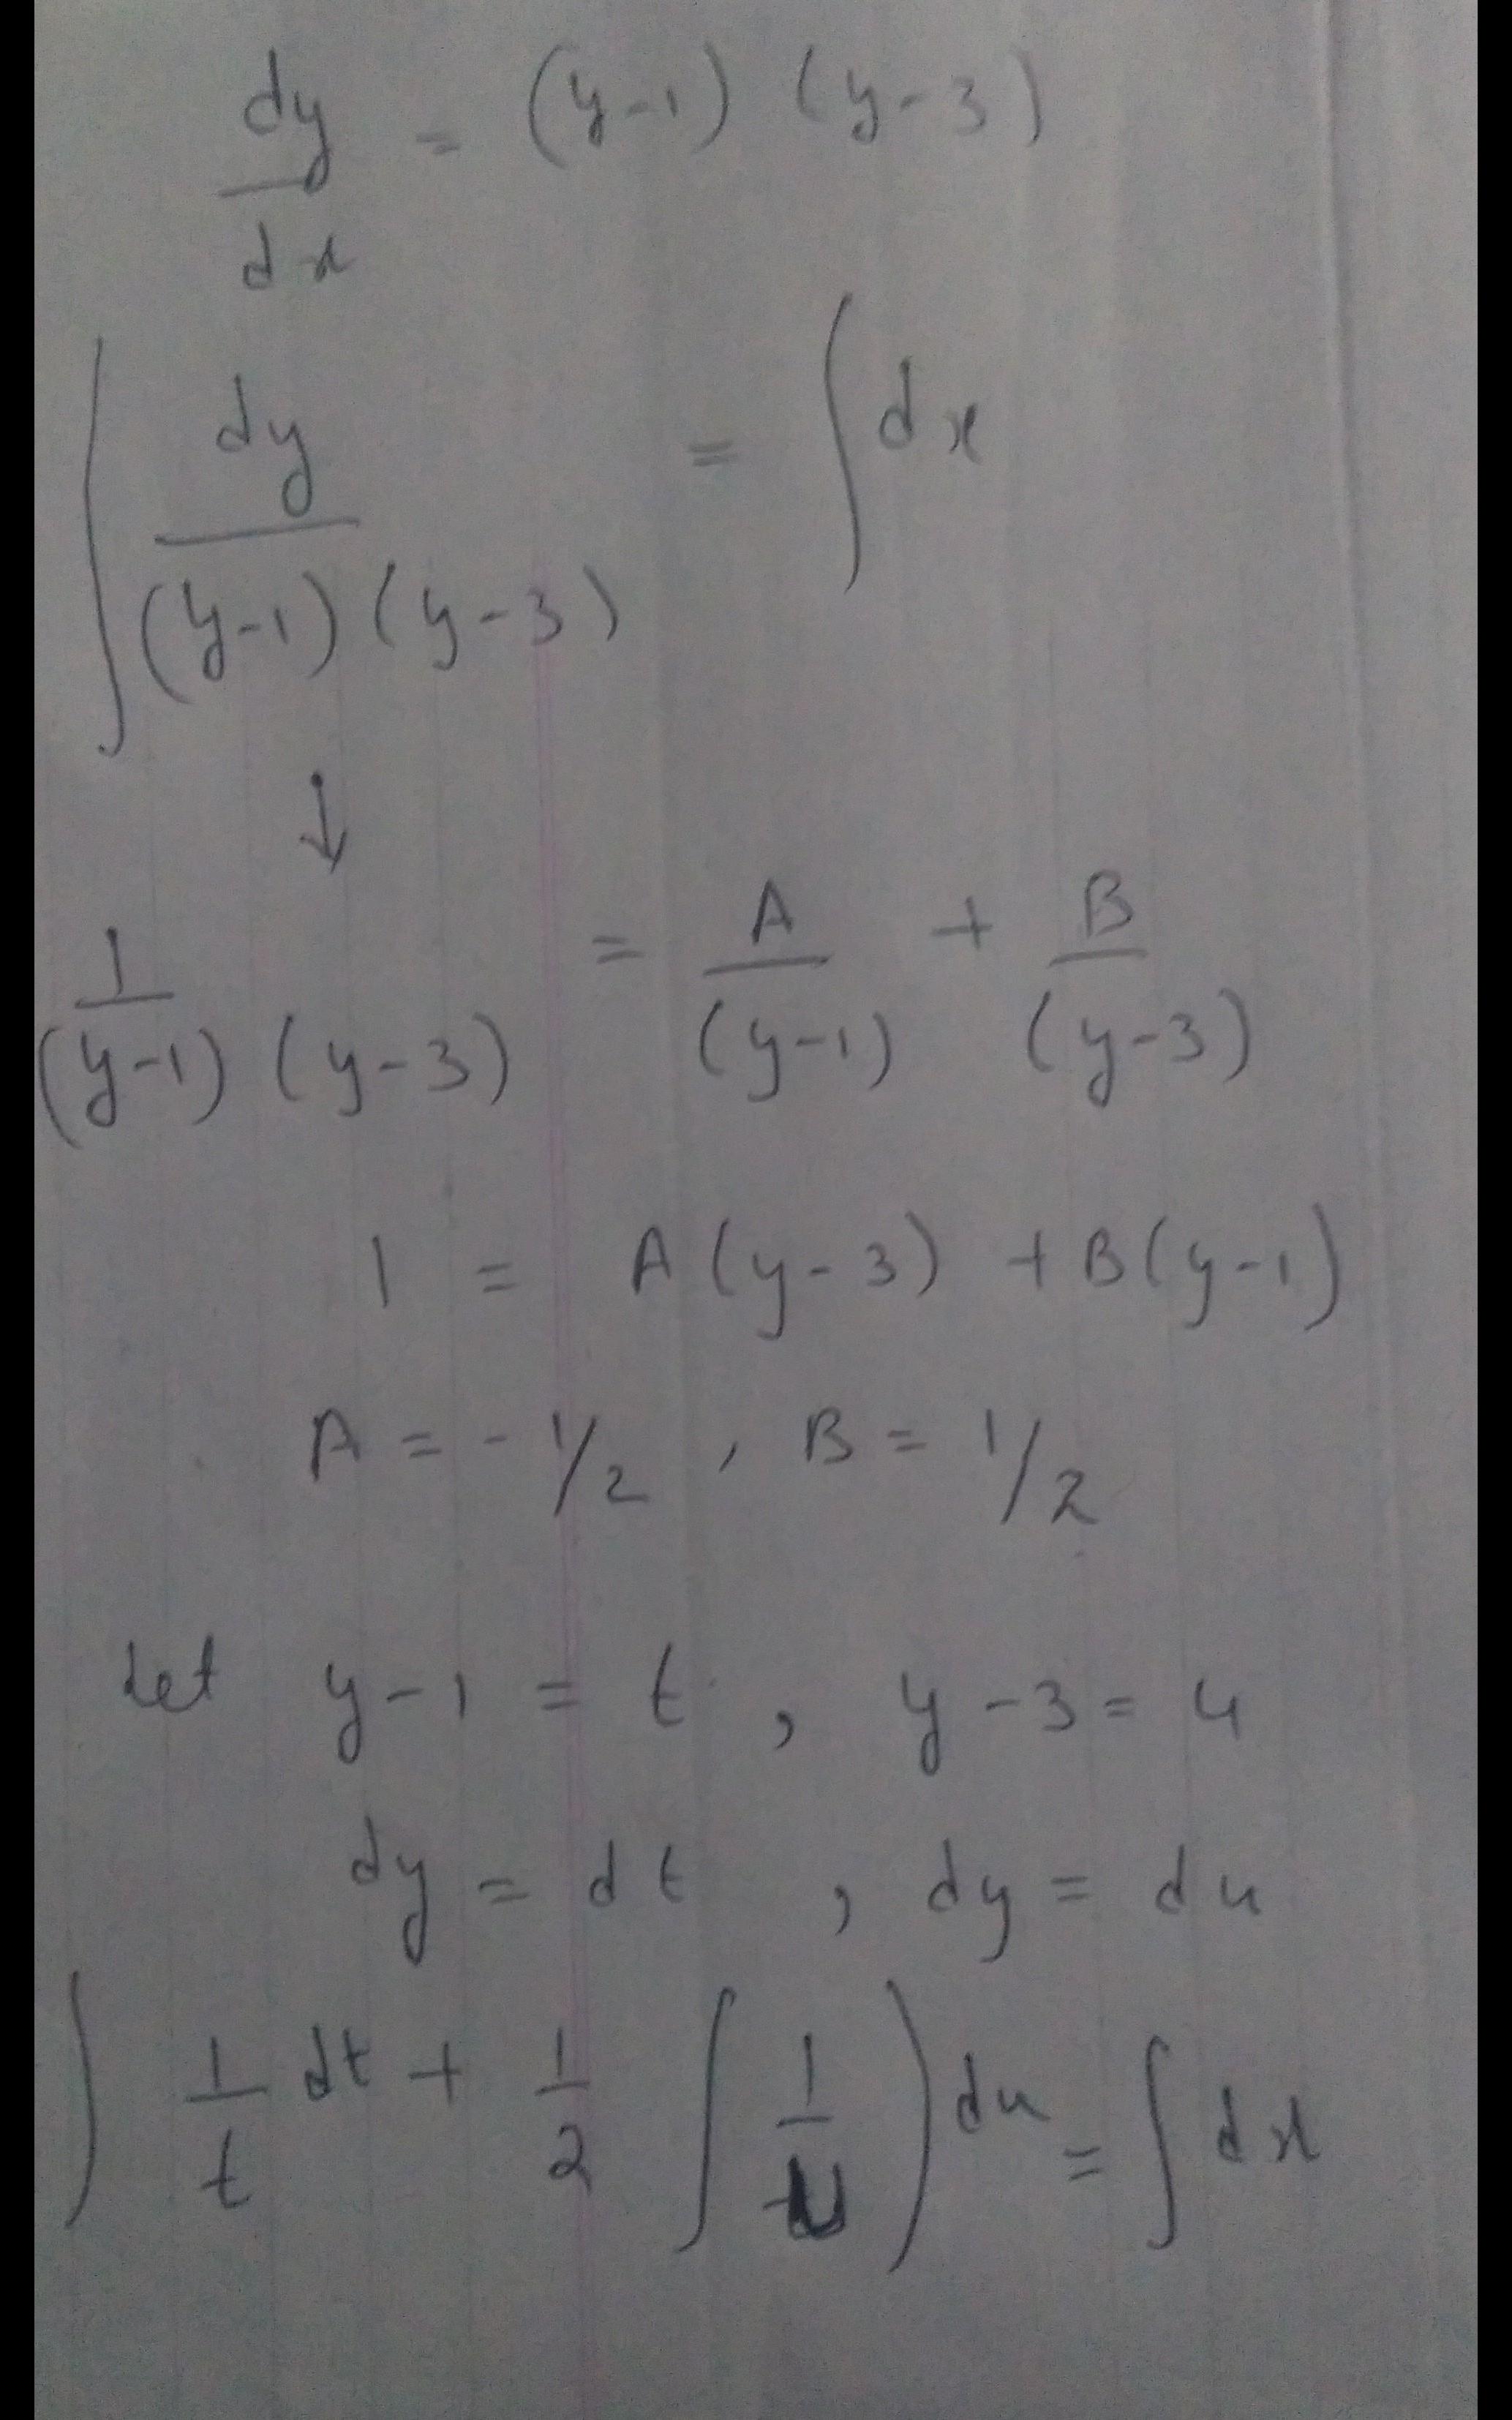 dy/dx = (y-1) (y-3)
∫ dy/((y-1)(y-3)) = ∫ dx
↓
1/((y-1)(y-3)) = A/(y-1) + B/(y-3)
1 = A(y-3) + B(y-1)
A = -1/2 , B = 1/2
Let y-1 = t , y-3 = u
dy = dt , dy = du
∫ 1/t dt + 1/2 ∫ (1/u) du = ∫ dx